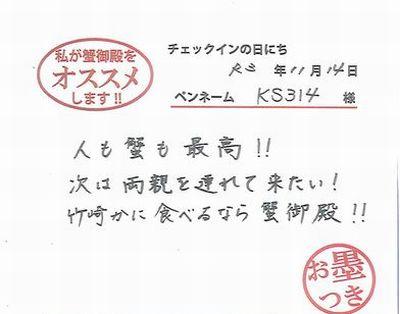 私が蟹御殿を
オススメ
します!!
チェックインの日にち
R5年11月14日
ペンネーム KS314 様
人も蟹も最高!!
次は両親を連れて来たい!
竹崎かに食べるなら蟹御殿!!
お墨
つき